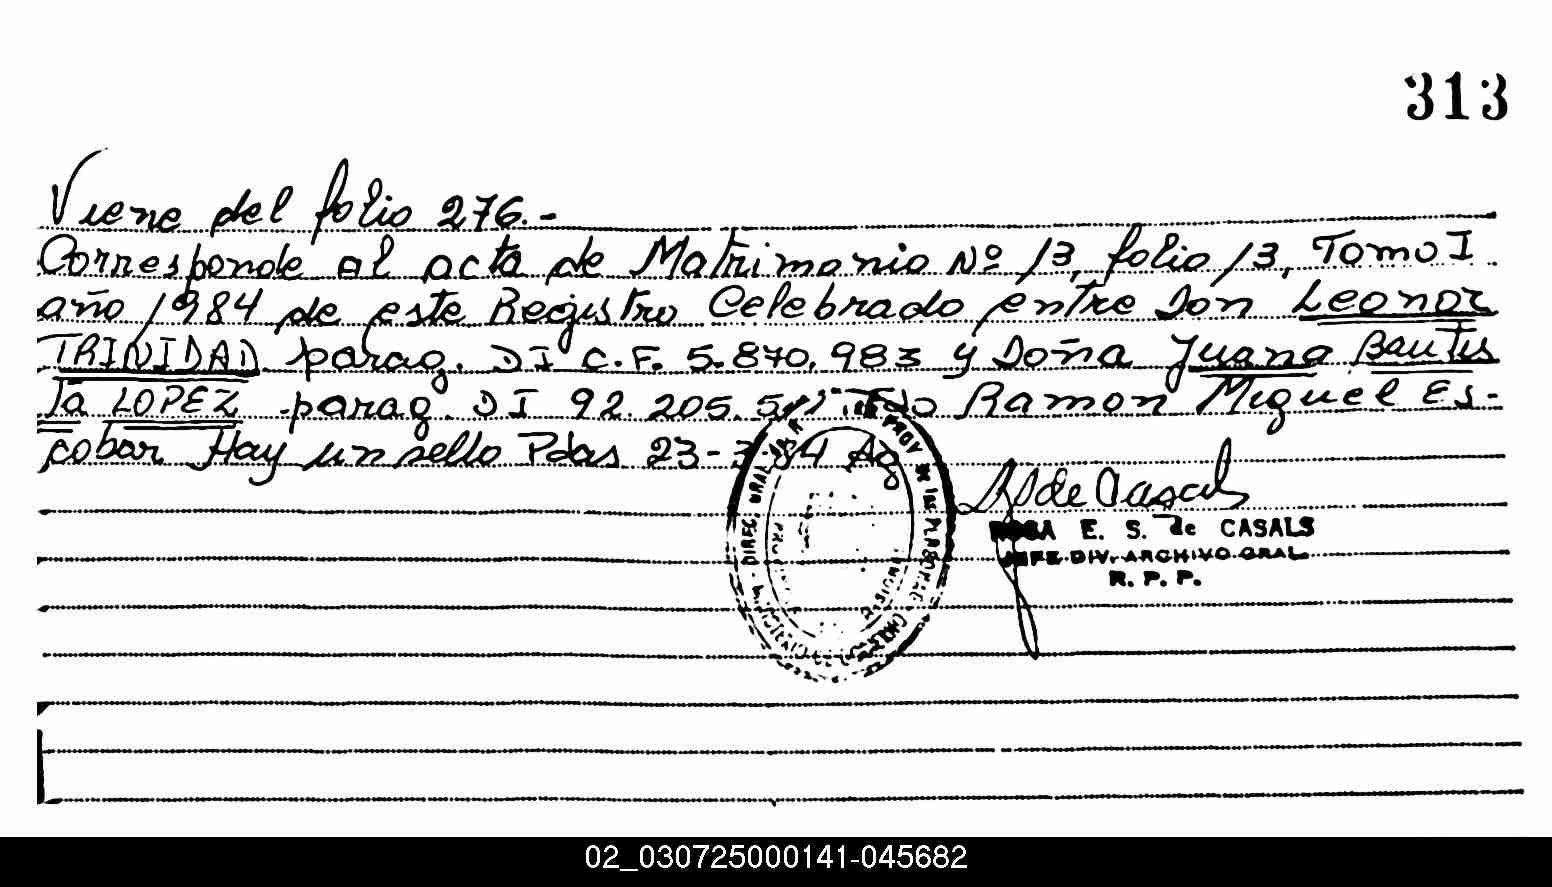 313
Viene del folio 276.-
Corresponde al acta de Matrimonio Nº 13, folio 13, Tomo I
año 1984 de este Registro Celebrado entre Don Leonor
TRINIDAD parag. DI C.F. 5.870.983 y Doña Juana Bautis
ta LOPEZ parag. DI 92.205.5 Fdo Ramon Miguel Es-
cobar Hay un sello Pdas 23-3-84 Ag
ROSA E. S. de CASALS
JEFE DIV. ARCHIVO GRAL
R. P. P.
02_030725000141-045682